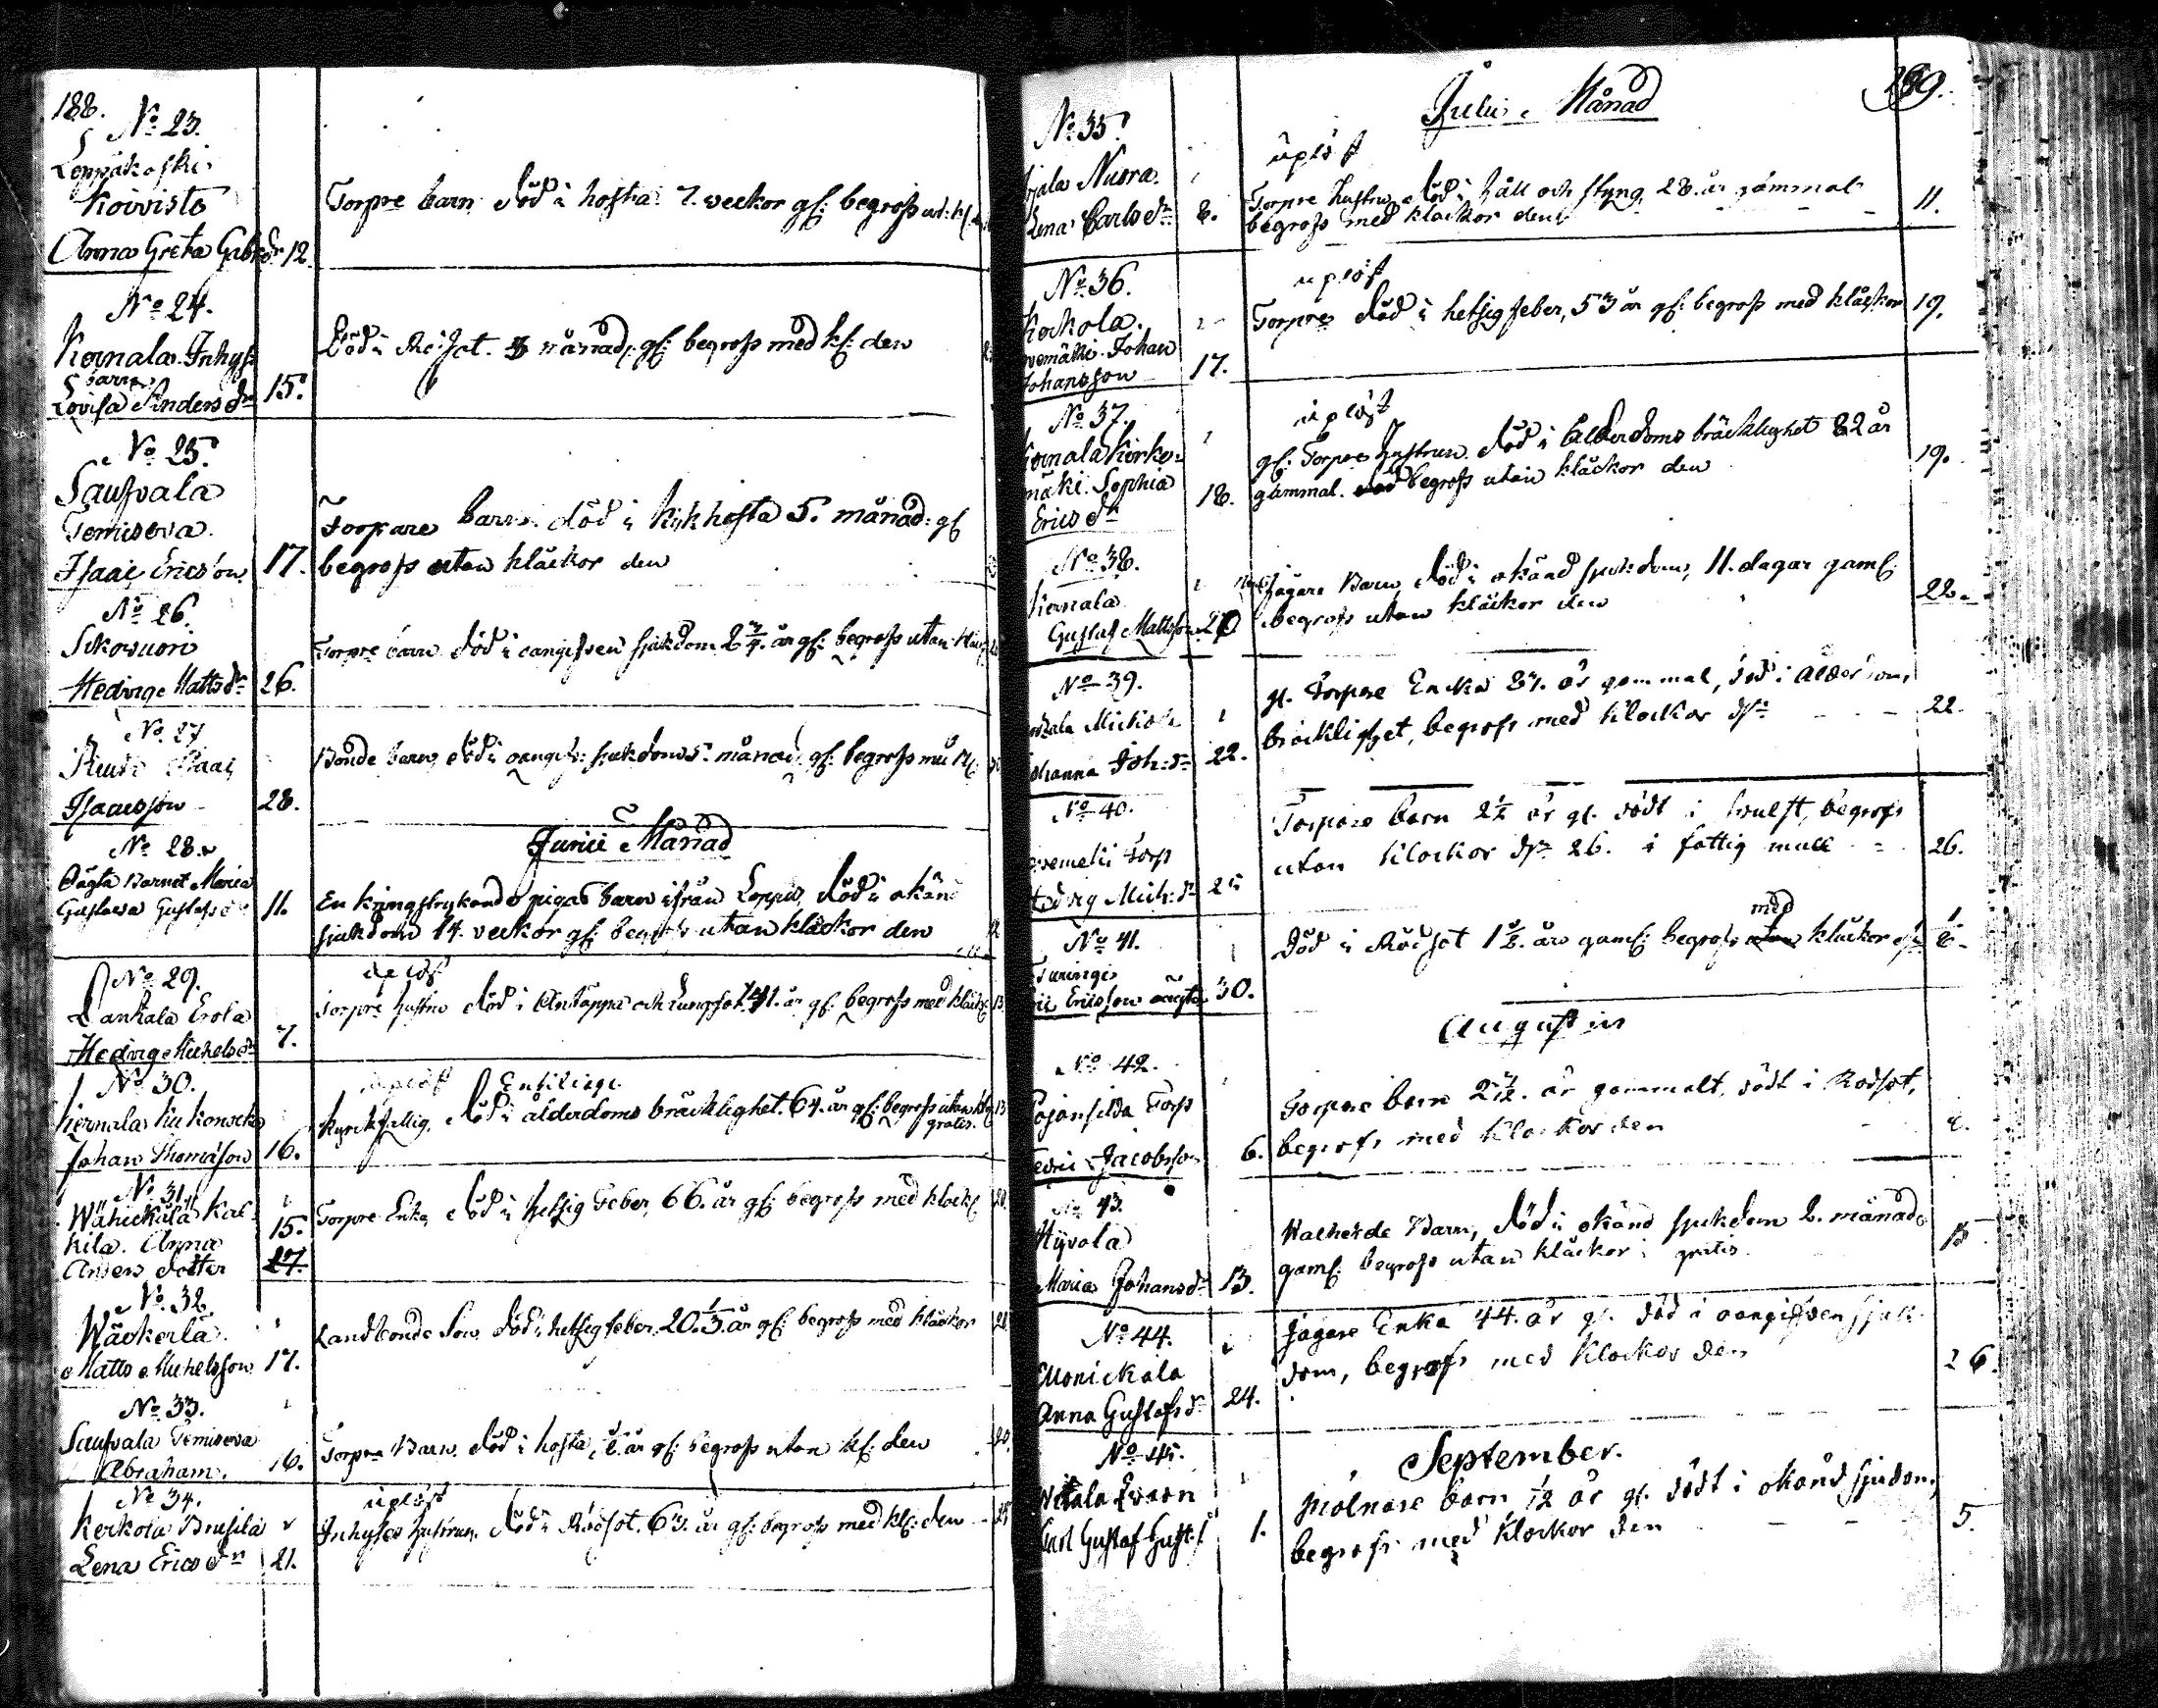 188.
No 23.
Leppäkoski
Koivisto
Anna Greta Gabrsdr 12.
Torpre barn död i hosta 7. veckor gl: begrofs
No 24.
Kernala Inhyss
barn
Lovisa Anders dr 15.
Död i Rödsot. månad gl: begrofs med kl: den
No 25.
Saufvala
Temiseva
Isaac Ericsson 17.
Torpare barn död i kikhosta 5. månad: gl
begrofs utan klåckor den
No 26.
Sikovuori
Hedvig Matts dr 26.
Torpre barn död i oangifven sjukdom 2 3/4. år gl: begrofs utan
No 27
Isaac
Isaacsson 28.
Bonde barn död i oangif: sjukdom 5. månad gl: begrofs med kl:
Junii Månad
No 28.
Oägta Barnet Maria
Gustava Gustafs dr 11.
En kringstrykande pigas barn ifrån Loppis, död i okänd
sjukdom 14. veckor gl: begrofs utan klåckor den
No 29.
Lankala Erola
Hedvig Michels dr 7.
uplöst
Torpre hustru död i Andtäppa och Lungsot 41. år gl: begrofs med klåck: 13
No 30.
Kernala
Johan Thomasson 16.
uplöst Enkling
Kyrkfattig, död i ålderdoms bräcklighet. 64. år gl: begrofs utan kl:
gratis.
No 31.
Wähickälä Kal-
kila. Anna
Anders dotter 15.
27.
Torpre Enka, död i hetsig Feber, 66. år gl: begrofs med klock:
No 32.
Wäckerlä
Matts Michelsson 17.
Landbonde Son död i hetsig feber, 20. 1/3. år gl: begrofs med klåckor
No 33.
Saufvala Temiseva
Abraham. 16.
Torpre Barn död i hosta, år gl: begrofs utan kl: den 20.
No 34.
Kerkola Brusila
Lena Erics dr 21.
uplöst
Inhyses hustrun, död i Rödsot. 63. år gl: begrofs med kl: den
189.
Julii Månad
No 35.
Nuora.
Lena Carls dr 8.
uplöst
Torpre hustru död i håll och styng, 28. år gammal
begrofs med klockor den 11.
No 36.
Kerkola.
Johan
Johansson 17.
uplöst
Torpre död i hetsig feber, 53 år gl: begrofs med klåckor 19.
No 37.
Kernala Kirko-
mäki. Sophia
Erics dr 18.
uplöst
gl: Torpre hustrun. död i ålderdoms bräcklighet 82 år
gammal. begrofs utan klåckor den 19.
No 38.
Kernala
Gustaf Mattsson 20
Jägare Barn, död i okänd sjukdom, 11. dagar gaml:
begrofs utan klåckor den 22.
No 39.
Johanna Joh: dr 22.
gl. Torpare Encka 87. år gammal, död i ålderdoms
bräcklighet, begrofs med klockor dn 22.
No 40.
Torp
Hedvig Mich: dr 25
Torpare barn 2 1/2 år gl. dödt i svulst, begrofs
utan klockor dn 26. i fattig mull 26.
No 41.
Turingi
Ericsson oägta 30.
med
Död i Rödsot 1 1/2. års gaml: begrofs utan klåckor
Augustus
No 42.
Torp
Jacobsson 6.
Torpare barn 2 . år gammalt, dödt i Rödsot,
begrofs med klockor den 8.
No 43.
Hyvola
Maria Johans dr 13.
Barn, död i okänd sjukdom 2. månads
gaml: begrofs utan klåckor gratis
No 44.
Monickala
Anna Gustafs dr 24.
Jägare Enka 44. år gl. död i oangifven sjuk-
dom, begrofs med klockor den 26.
September.
No 45.
Carl Gustaf Gust: s 1.
Mölnare barn 1/2 år gl. dödt i okänd sjukdom,
begrofs med klockor den 5.